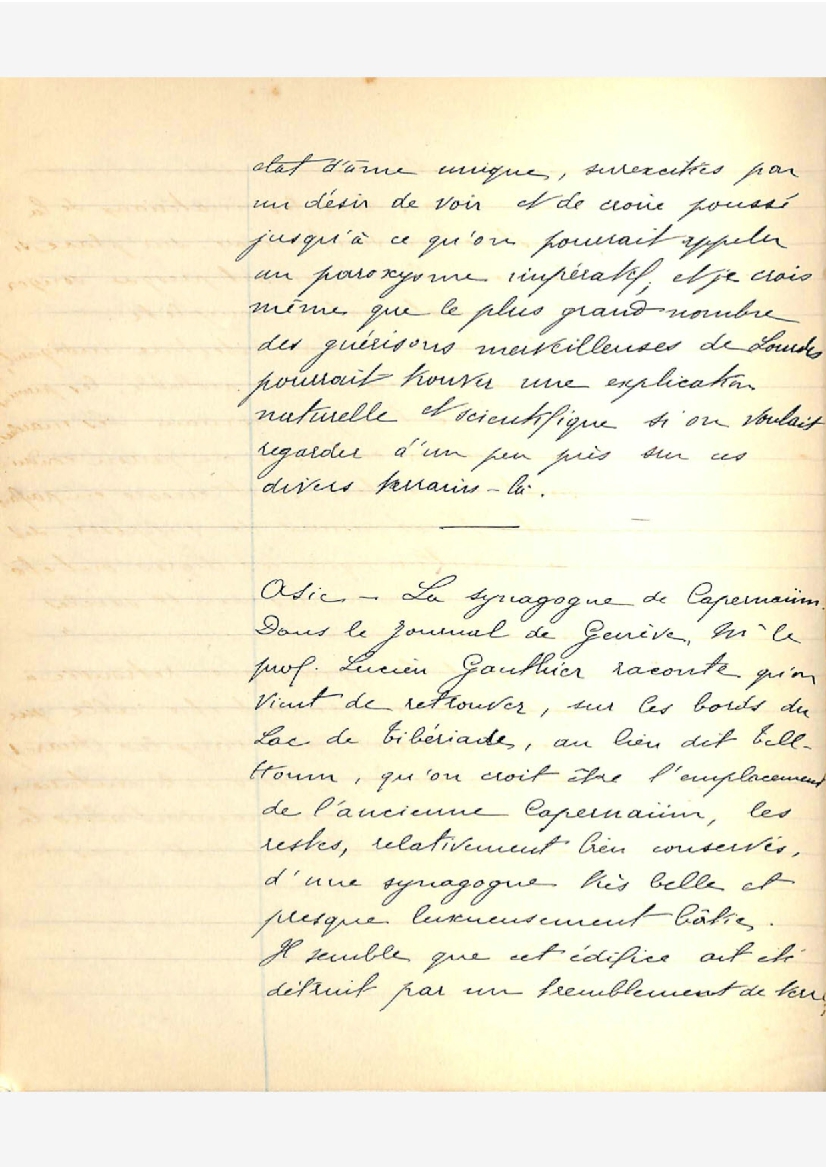 état d'âme unique, surexcitées par
un désir de voir et de croire poussé
jusqu'à ce qu'on pourrait appeler
un paroxysme impératif; et je crois
même que le plus grand nombre
des guérisons merveilleuses de Lourdes
pourrait trouver une explication
naturelle et scientifique si on voulait
regarder d'un peu près sur ces
divers terrains-là.
Asie — La synagogue de Capernaüm.
Dans le Journal de Genève, Mr le
prof. Lucien Gauthier raconte qu'on
vient de retrouver, sur les bords du
Lac de Tibériade, au lieu dit Tell-
Houm, qu'on croit être l'emplacement
de l'ancienne Capernaüm, les
restes, relativement bien conservés,
d'une synagogue très belle et
presque luxueusement bâtie.
Il semble que cet édifice ait été
détruit par un tremblement de terre,